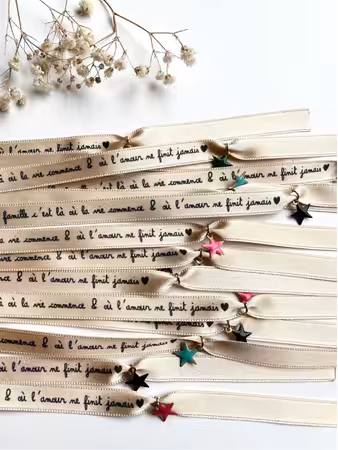 & où l'amour ne finit jamais ♥
où la vie commence & où l'amour ne finit jamais ♥
& où l'amour ne finit jamais ♥
famille c'est là où la vie commence & où l'amour ne finit jamais ♥
vie commence & où l'amour ne finit jamais ♥
la vie commence & où l'amour ne finit jamais ♥
commence & où l'amour ne finit jamais ♥
où la vie commence & où l'amour ne finit jamais ♥
finit jamais ♥
commence & où l'amour ne finit jamais ♥
& où l'amour ne finit jamais ♥
& où l'amour ne finit jamais ♥